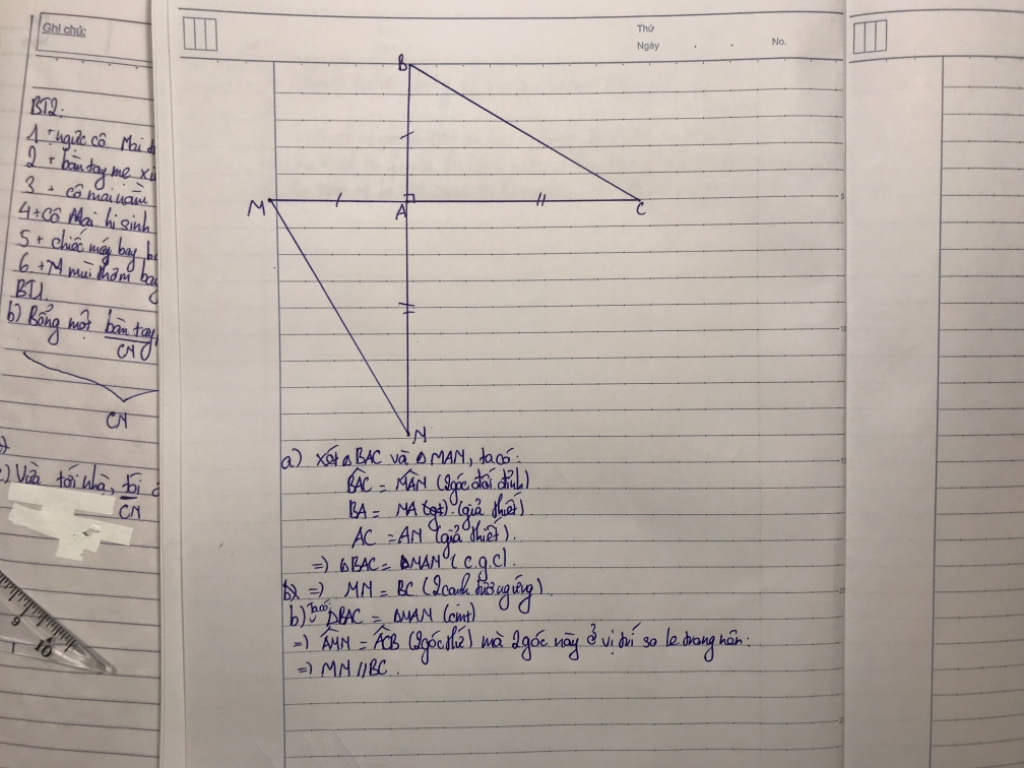 Ghi chú:
BT2.
1 + ngực cô Mai
2 + bàn tay mẹ
3 + cô mai nằm
4 + cô Mai hi sinh
5 + chiếc máy bay
6 + M mùi thơm bay
BT1.
b) Bổng một bàn tay
CN
CN
c) Vừa tới nhà, tôi
CN
9
10
Thứ
Ngày . . No.
B
M
A
C
5
10
N
a) Xét △BAC và △MAN, ta có:
BÂC = MÂN (2 góc đối đỉnh)
BA = MA (giả thiết)
AC = AN (giả thiết).
=) △BAC = △MAN (c.g.c).
=) MN = BC (2 cạnh tương ứng).
b) Ta có △BAC = △MAN (cmt)
=) = ACB (2 góc) mà 2 góc này ở vị trí so le trong nên:
=) MN // BC.